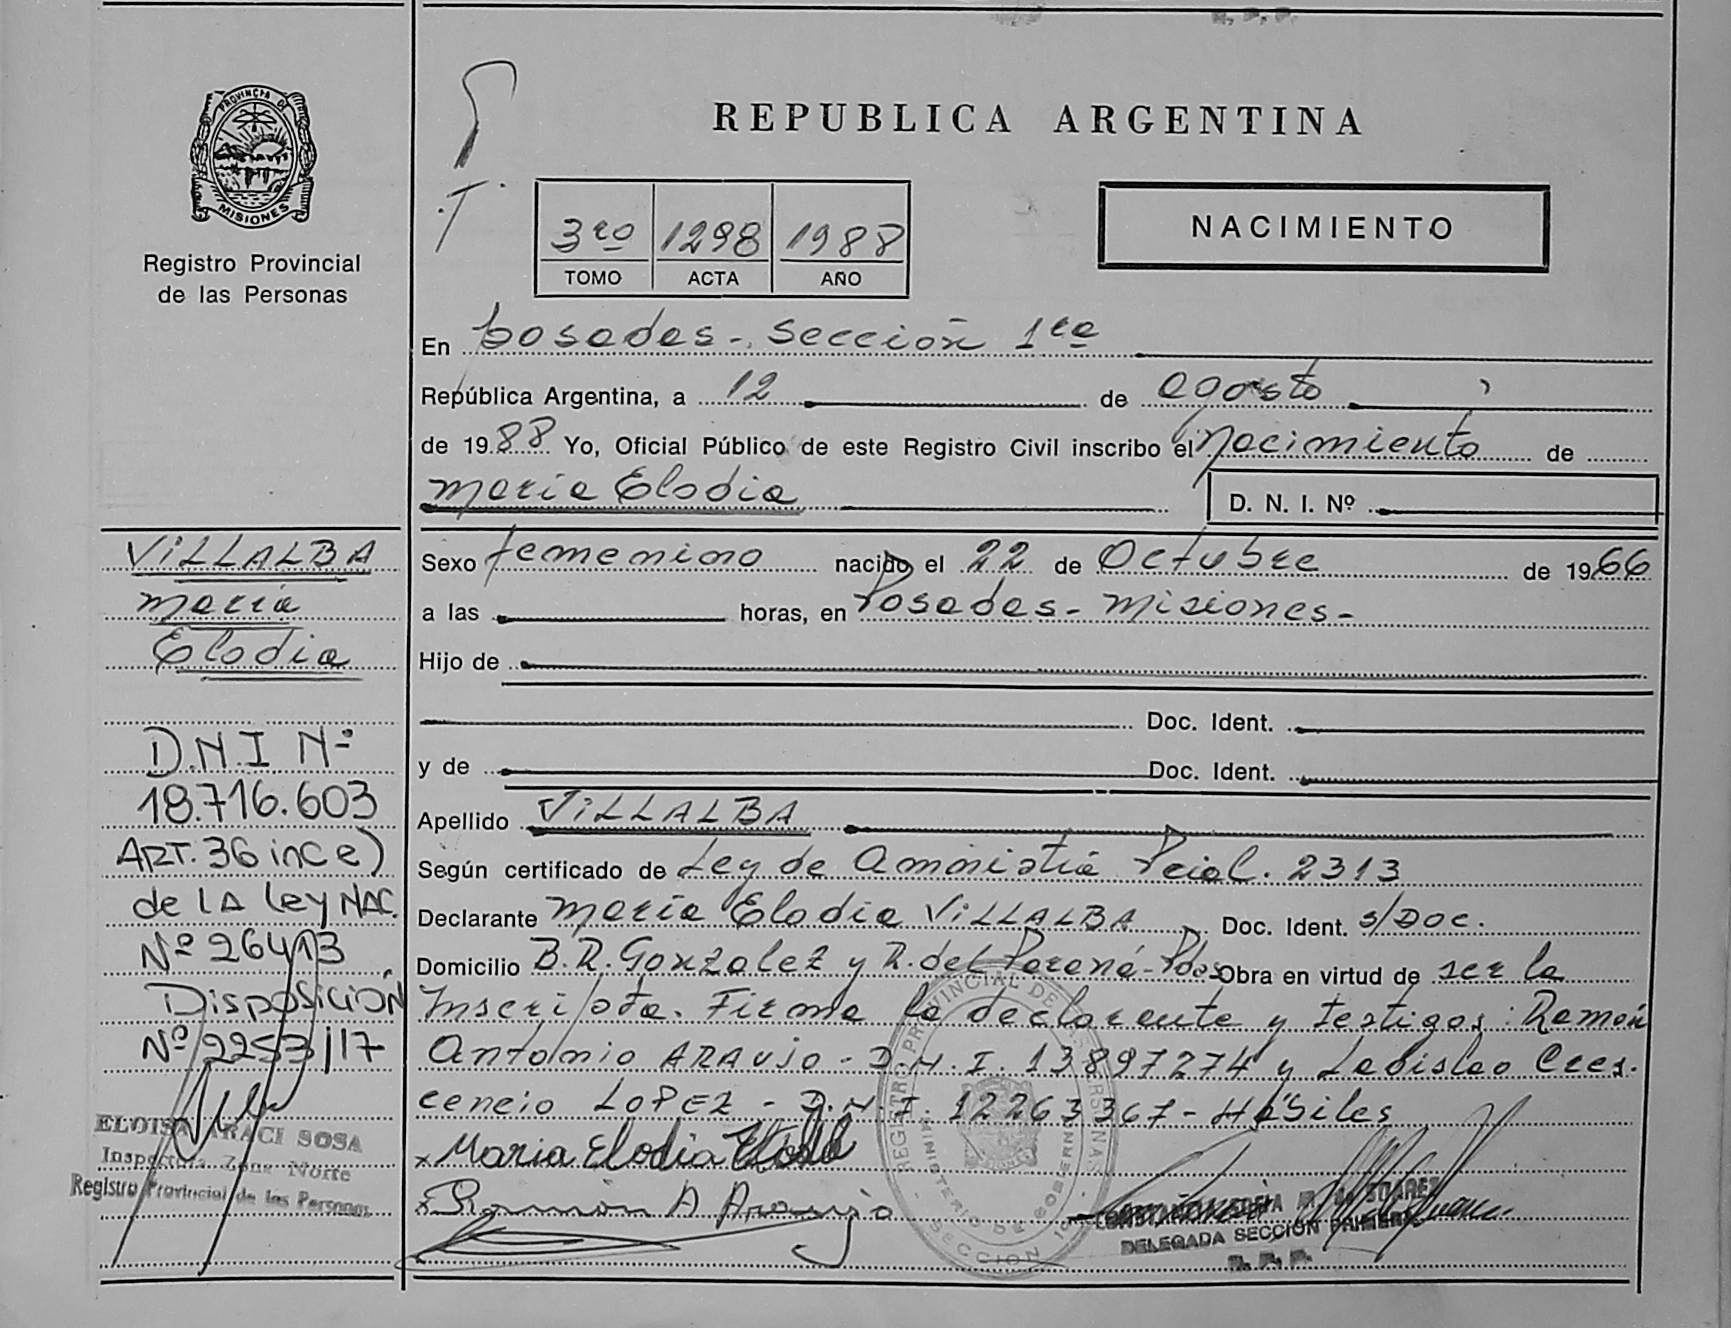 R. P. P.
PROVINCIA DE
MISIONES
Registro Provincial
de las Personas
REPUBLICA ARGENTINA
3ro 1298 1988
TOMO ACTA AÑO
NACIMIENTO
En Posadas-, Sección 1ra
República Argentina, a 12 de agosto
de 1988 Yo, Oficial Público de este Registro Civil inscribo el Nacimiento de
María Elodia D. N. I. Nº
Sexo femenino nacido el 22 de Octubre de 1966
a las horas, en Posadas- Misiones-
Hijo de
Doc. Ident.
y de Doc. Ident.
Apellido VILLALBA
Según certificado de Ley de Amnistía Pcial. 2313
Declarante María Elodia VILLALBA Doc. Ident. s/Doc.
Domicilio B.R. Gonzalez y R. del Paraná-Pdas Obra en virtud de ser la
Inscripta. Firma la declarante y testigos: Ramón
Antonio ARAUJO - D.N.I. 13897274 y Ladislao Cres-
cencio LOPEZ - D.N.I. 12263367- Hábiles
x Maria Elodia
x Ramón A Araujo
VILLALBA
María
Elodia
D.N.I Nº
18.716.603
ART. 36 inc e)
de LA Ley NAC.
Nº 26413
Disposición
Nº 2253/17
ELOISA ARACI SOSA
Inspectora Zona Norte
Registro Provincial de las Personas
REGISTRO PROVINCIAL DE LAS PERSONAS
MINISTERIO DE GOBIERNO
SECCION 1a
SUAREZ
DELEGADA SECCION PRIMERA
R. P. P.